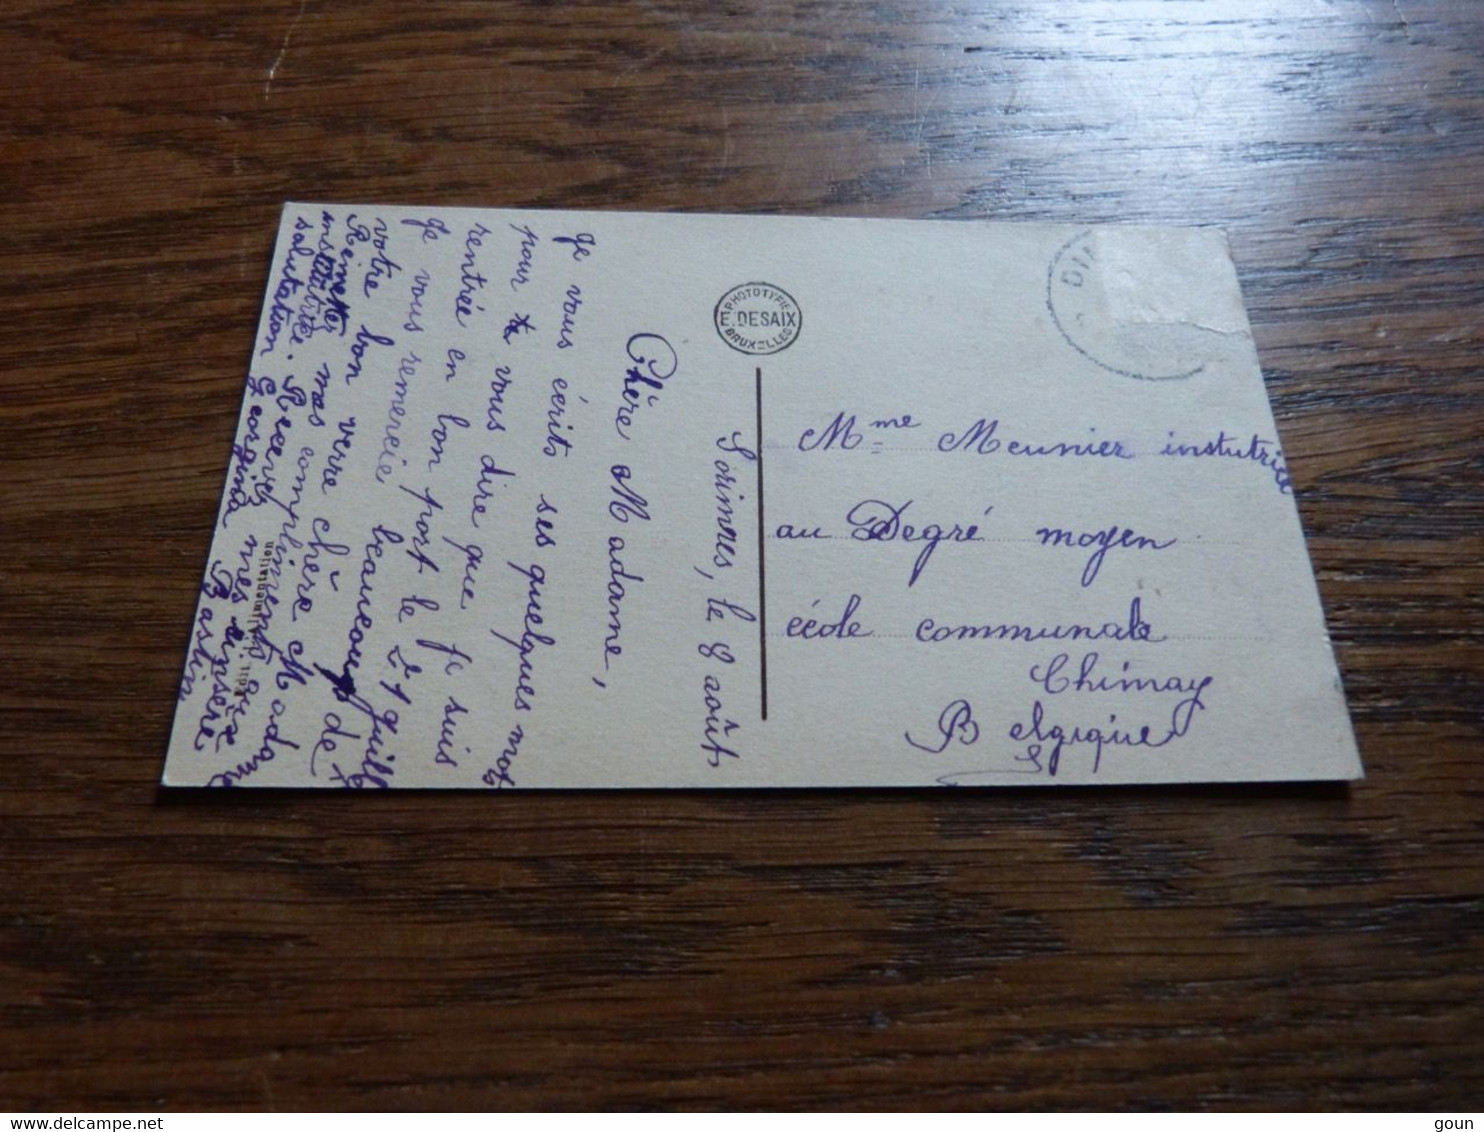 Sorinnes, le 8 août
Chère Madame,
Je vous écrits ses quelques mots
pour vous dire que je suis
rentrée en bon port le 21 juillet
Je vous remercie beaucoup de
votre bon verre chère Madame
Remettez mes compliments aux
institutrice. Recevez mes sincère
salutation Georgina Bastin
PHOTOTYPIE
E. DESAIX
BRUXELLES
DIN
Mme Meunier instutrice
au Degré moyen
école communale
Chimay
Belgique
goun